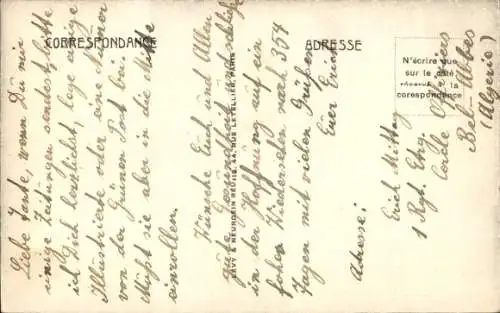 CORRESPONDANCE
ADRESSE
N'écrire que
sur le côté
réservé à la
corespondance
LEVY & NEURDEIN RÉUNIS, 44, RUE LETELLIER, PARIS
Liebe Tante, wenn Du mir
einige Zeitungen sendest bitte
ich Dich herzlichst, lege einige
Illustrierte oder eine Nummer
von der Grünen Post bei
Mußt sie aber in die Mitte
einrollen.
Wünsche Euch und Allen
gute Gesundheit und
in der Hoffnung auf ein
frohes Wiedersehn nach 334
Tagen mit vielen Grüßen
Euer Erich
Adresse:
Erich Mittag
1 Reg. Etrg.
Bel-Abbes
(Algerie)